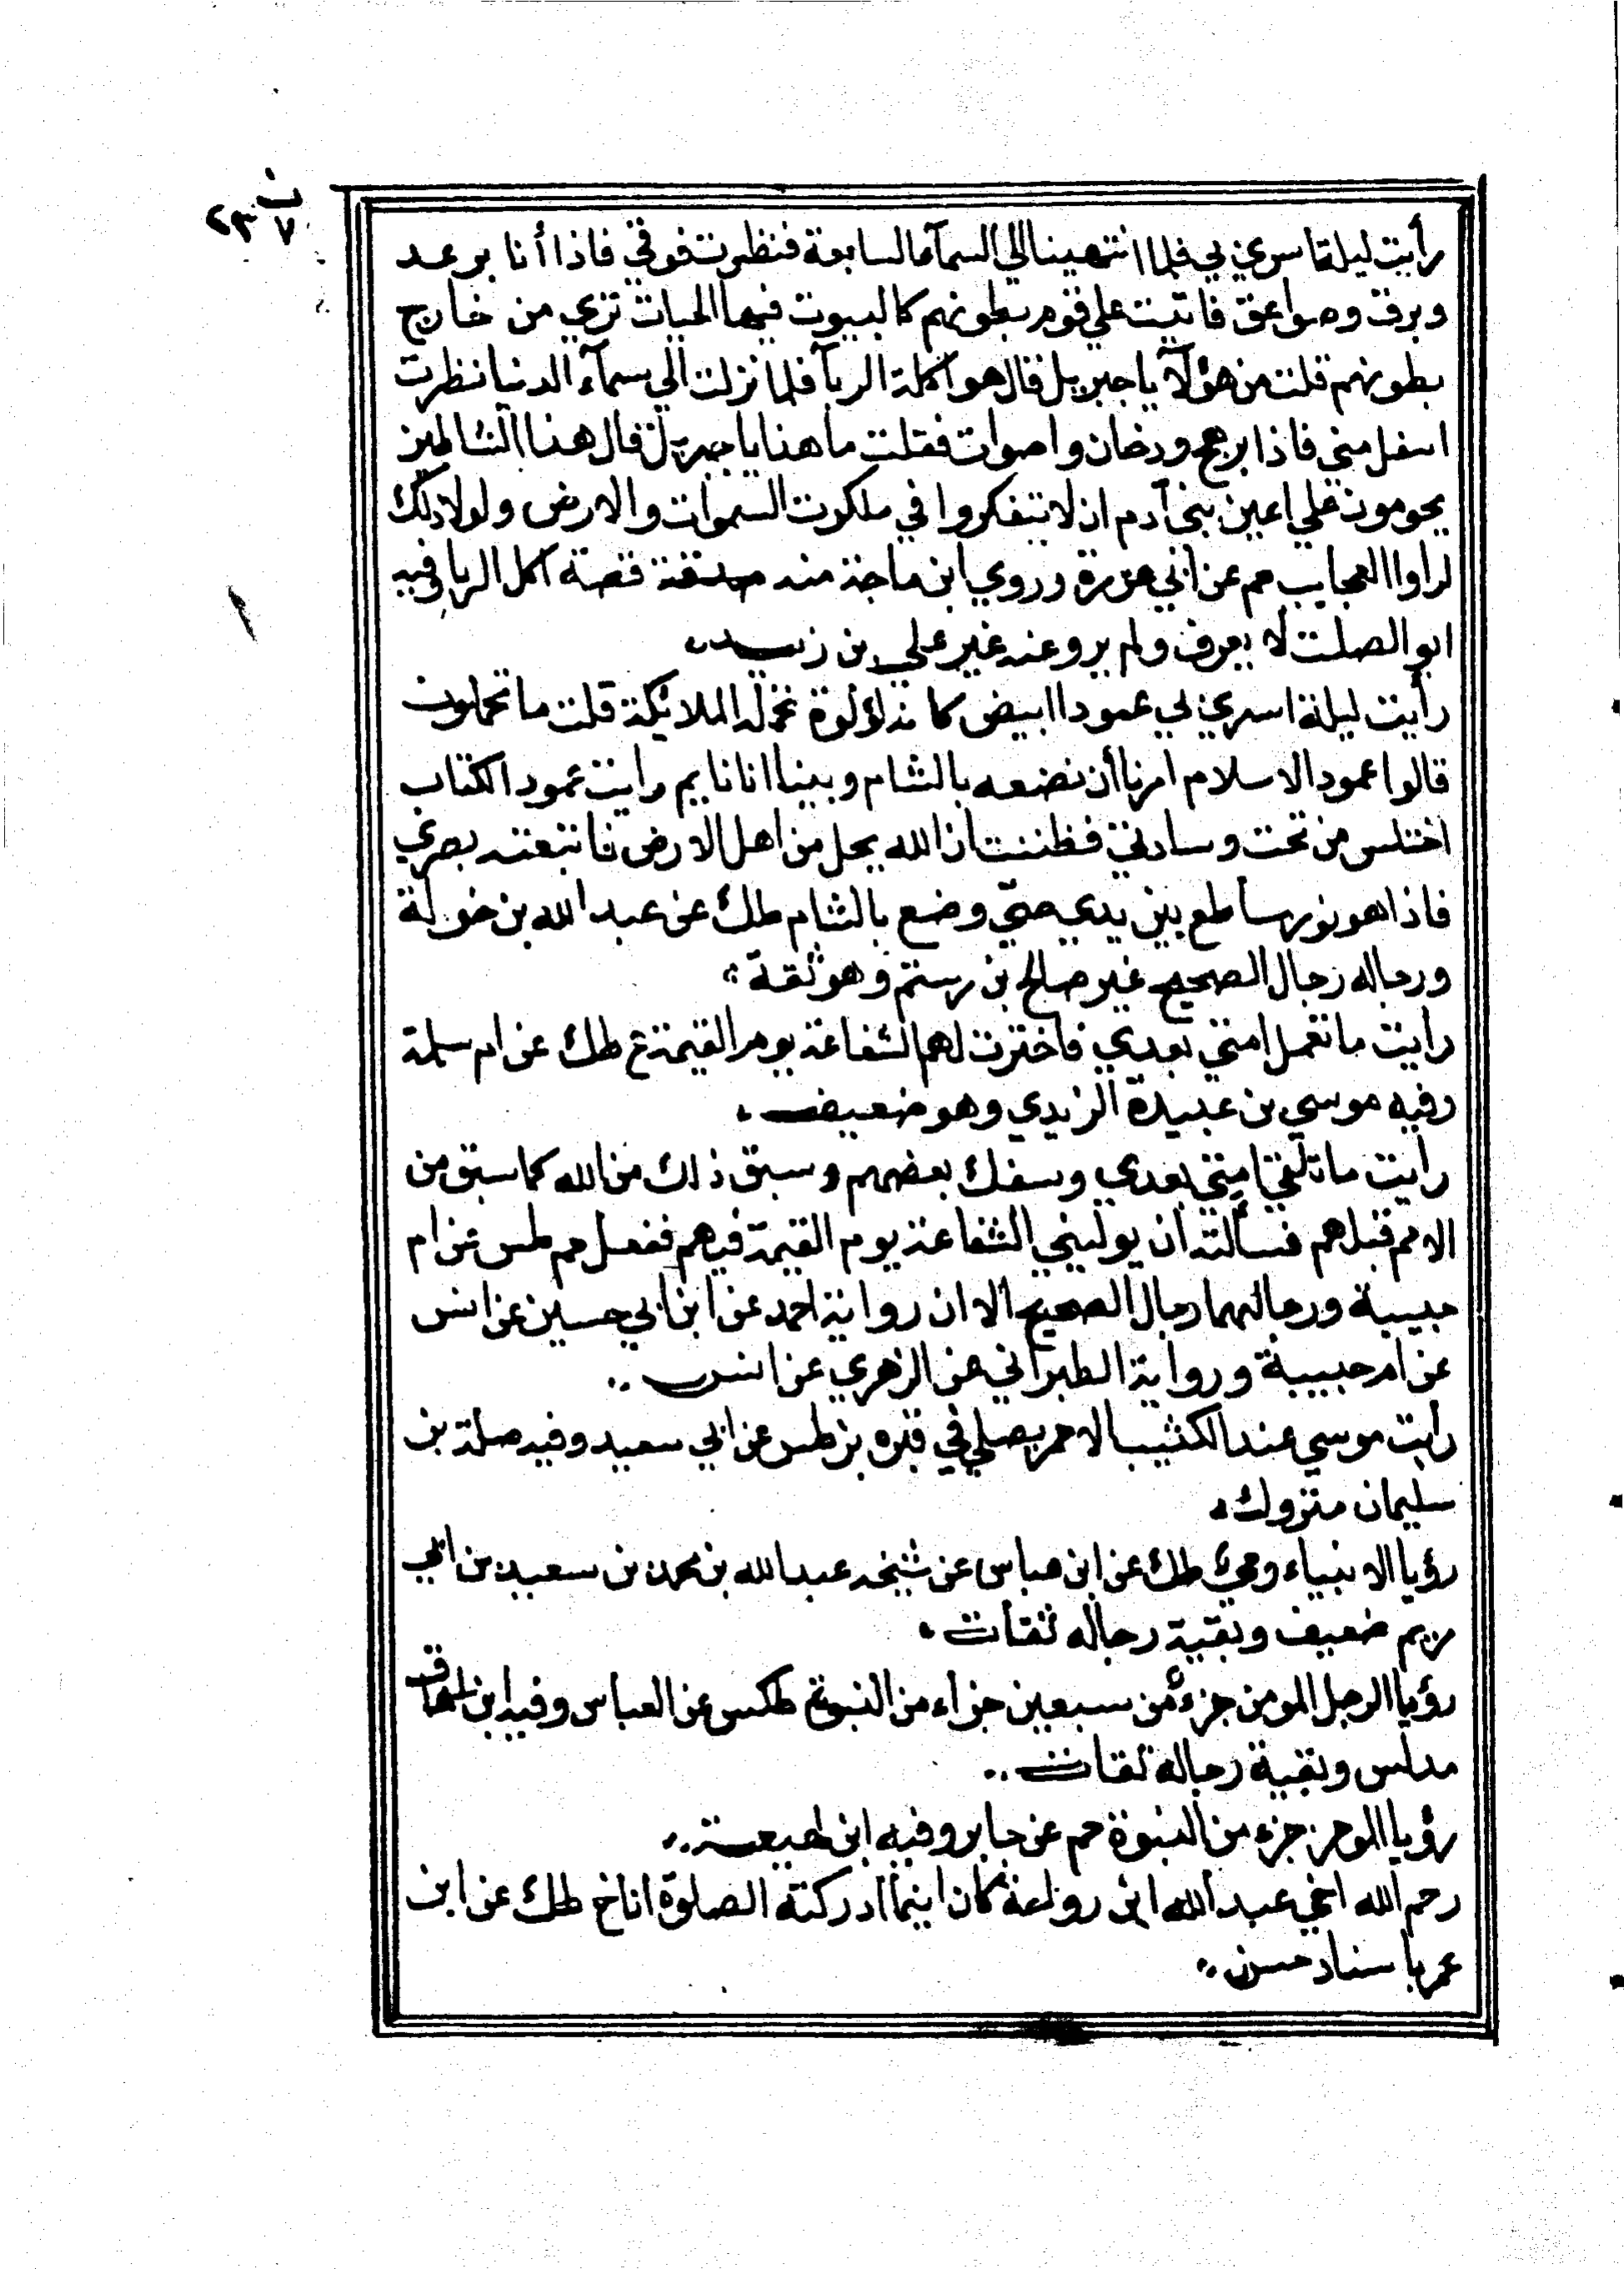 ب
٢٣٧
رأيت ليلة اسري بي فلما انتهينا الي السمآء السابعة فنظرت فوقي فاذا أنا برعد
وبرق وصواعق فاتيت علي قوم بطونهم كالبيوت فيها الحيات تري من خارج
بطونهم قلت من هؤلآء يا جبريل قال هو اكلة الربآ فلما نزلت الي سمآء الدنيا نظرت
اسفل مني فاذا برهج ودخان واصوات فقلت ما هذا يا جبريل قال هذا الشياطين
يحومون علي اعين بني آدم ان لا يتفكروا في ملكوت السموات والارض ولولا ذلك
لراوا العجايب حم عن ابي هريرة وروي ابن ماجة منه قصة اكل الربا وفيه
ابو الصلت لا يعرف ولم يرو عنه غير علي بن زيد
رأيت ليلة اسري بي عمودا ابيض كانه لؤلؤة تحمله الملائكة قلت ما تحملون
قالوا عمود الاسلام امرنا أن نضعه بالشام وبينا انا نايم رايت عمود الكتاب
اختلس من تحت وسادتي فظننت ان الله يحل من اهل الارض فاتبعته بصري
فاذا هو نور ساطع بين يدي حتي وضع بالشام طك عن عبد الله بن خولة
ورجاله رجال الصحيح غير صالح بن رستم وهو ثقة
رأيت ما تعمل امتي بعدي فاخترت لهم الشفاعة يوم القيمة ع طك عن ام سلمة
وفيه موسي بن عبيدة الزبدي وهو ضعيف
رأيت ما تلقي امتي بعدي وسفك بعضهم وسبق ذلك من الله كما سبق من
الامم قبلهم فسألته أن يوليني الشفاعة يوم القيمة فيهم ففعل حم طس عن ام
حبيبة ورجالهما رجال الصحيح الا ان رواية احمد عن ابن ابي حسين عن انس
عن ام حبيبة ورواية الطبراني عن الزهري عن انس
رأيت موسي عند الكثيب الاحمر يصلي في قبره بز طس عن ابي سعيد وفيه صلة بن
سليمان متروك
رؤيا الانبياء وحي طك عن ابن عباس عن شيخه عبد الله بن محمد بن سعيد بن ابي
مريم ضعيف وبقية رجاله ثقات
رؤيا الرجل المومن جزء من سبعين جزاء من النبوة طكس عن العباس وفيه ابن اسحاق
مدلس وبقية رجاله ثقات
رؤيا المومن جزء من النبوة حم عن جابر وفيه ابن لهيعة
رحم الله اخي عبد الله ابن رواحة كان اينما ادركته الصلوة اناخ طك عن ابن
عمر باسناد حسن